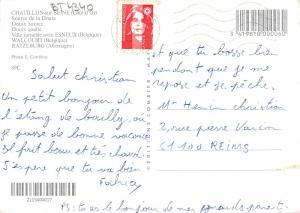 CHATILLON-sur-SEINE (Côte d'Or)
BT 4340
Source de la Douix
Douix Source
Douix quelle
Ville jumelée avec ESNEUX (Belgique)
WALCOURT (Belgique)
RATZEBURG (Allemagne)
SPC.
Salut christian
Un petit bonjour de
l'étang de
je passe de bonne vacance
il fait beau et très chaud
J'espère que tu va bien
Fabrice
et que tu bosse bien
pendant que je me
repose et je pêche.
Mr Henin christian
2, rue pierre
51100 REIMS
PS: tu as le bonjour de mes grands parents.